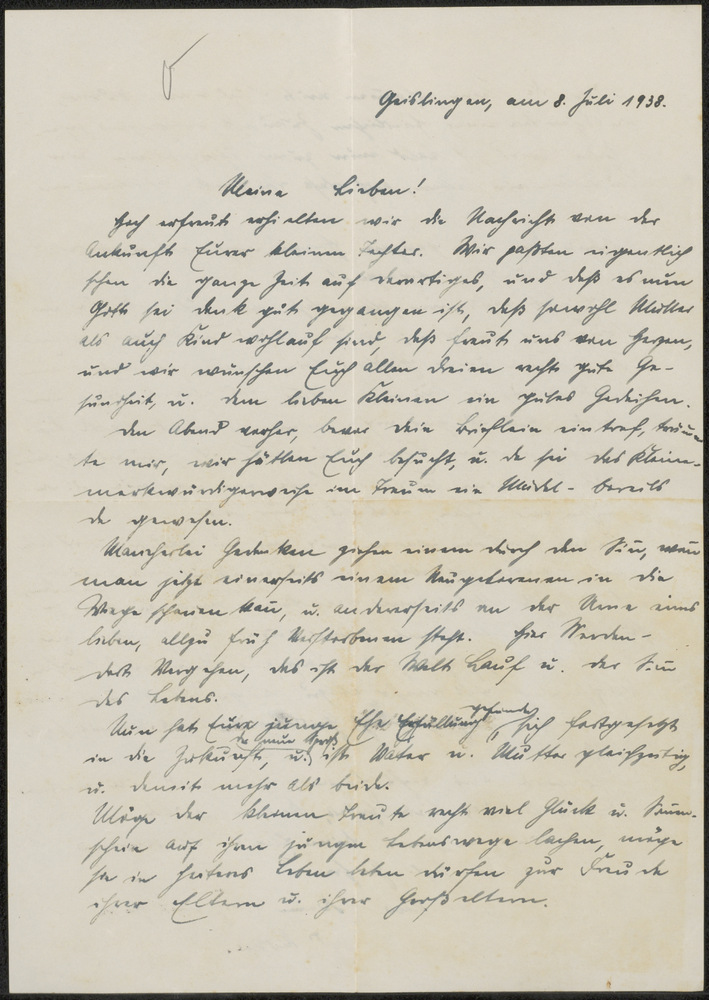 Geislingen, am 8. Juli 1938.
Meine Lieben!
Hoch erfreut erhielten wir die Nachricht von der
Ankunft Eurer kleinen Tochter. Wir paßten eigentlich
schon die ganze Zeit auf derartiges, und daß es nun
Gott sei dank gut gegangen ist, daß sowohl Mutter
als auch Kind wohlauf sind, daß freut uns von Herzen,
und wir wünschen Euch allen dreien recht gute Ge-
sundheit, u. dem lieben Kleinen ein gutes Gedeihen.
Den Abend vorher, bevor Dein Brieflein eintraf, träum
te mir, wir hätten Euch besucht, u. da sei das Kleine -
merkwürdigerweise im Traum ein Mädel - bereits
da gewesen.
Mancherlei Gedanken ziehen einem durch den Sin, wenn
man jetzt einerseits einem Neugeborenen in die
Wiege schauen kan, u. andererseits an der Urne eines
lieben, allzu früh Verstorbenen steht. Hier Werden -
dort Vergehen, das ist der Welt Lauf u. der Sin
des Lebens.
Nun hat Eure junge Ehe Erfüllung gefunden, sich fortgesetzt
in die Zukunft, u. ist Vater u. Mutter gleichzeitig,
u. damit mehr als beide.
Möge der kleinen Traute recht viel Glück u. Sonnen-
schein auf ihrem jungen Lebenswege lachen, möge
sie ein heiteres Leben leben dürfen zur Freude
ihrer Eltern u. ihrer Großeltern.